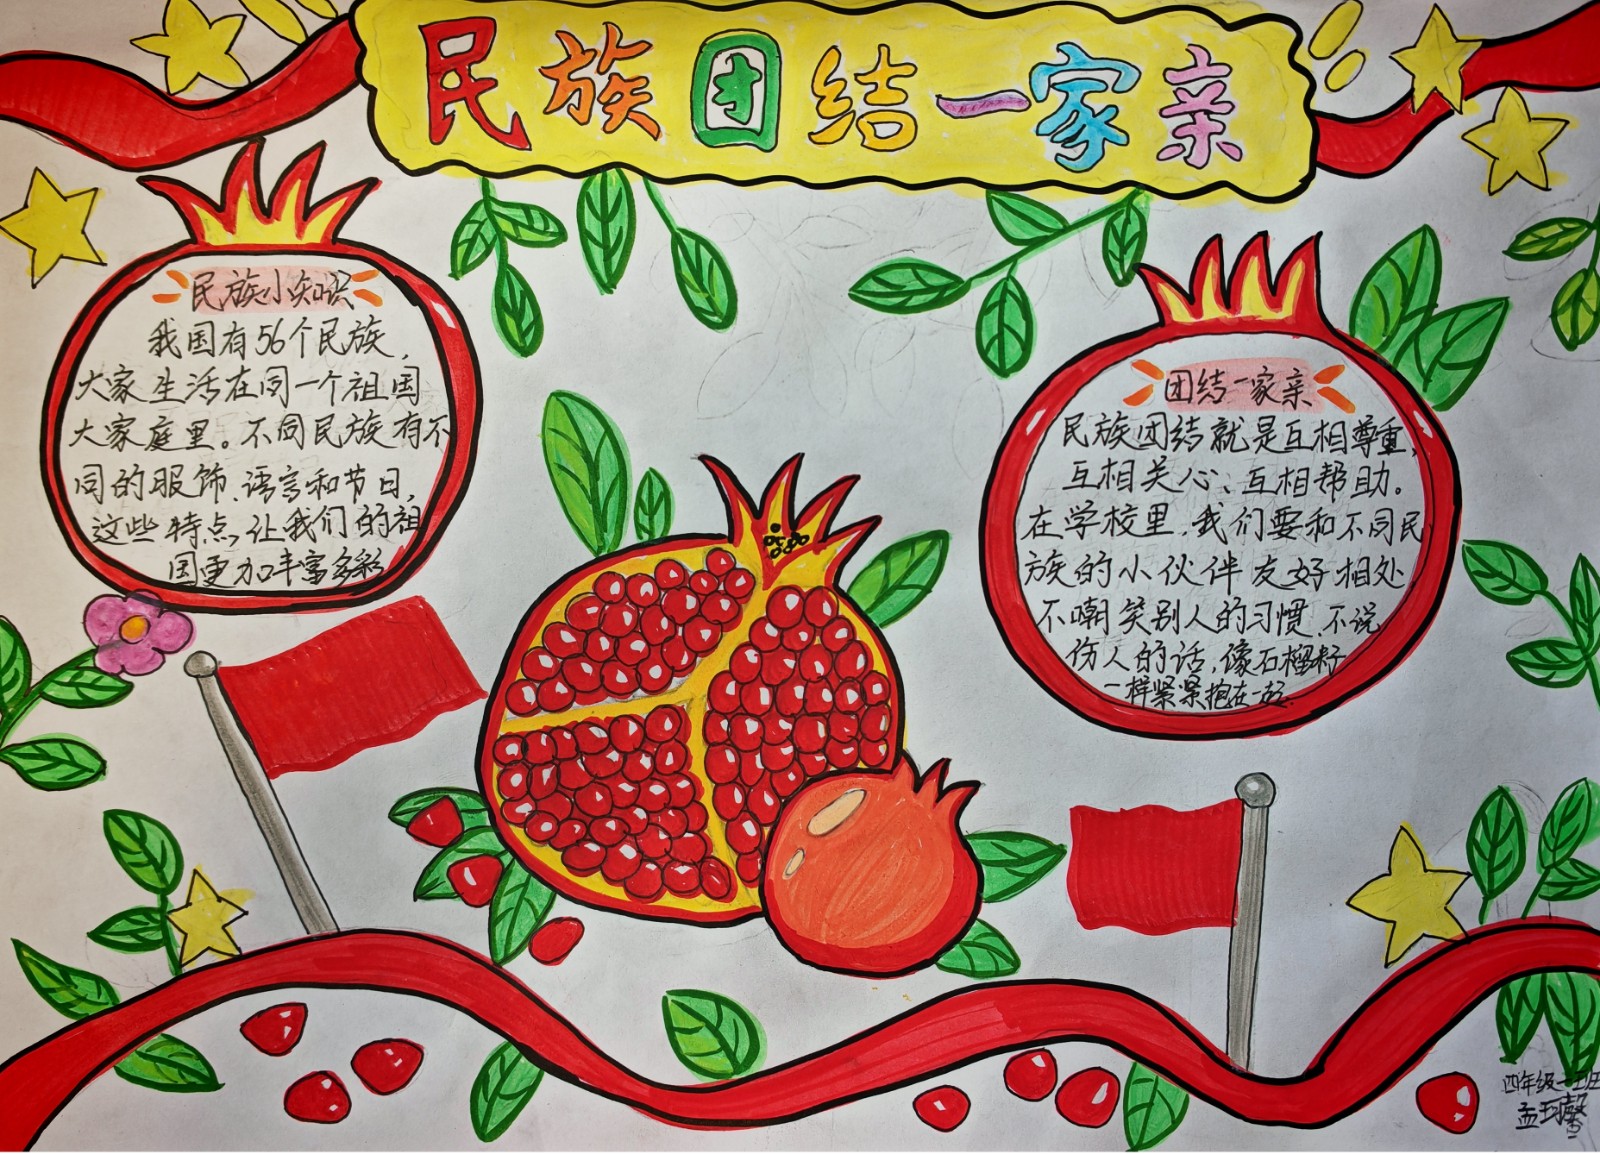 民族团结一家亲
民族小知识
我国有56个民族，
大家生活在同一个祖国
大家庭里。不同民族有不
同的服饰、语言和节日，
这些特点，让我们的祖
国更加丰富多彩
团结一家亲
民族团结就是互相尊重，
互相关心、互相帮助。
在学校里，我们要和不同民
族的小伙伴友好相处
不嘲笑别人的习惯，不说
伤人的话，像石榴籽
一样紧紧抱在一起.
四年级一班
孟